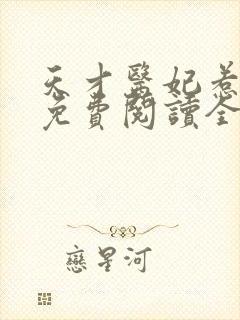 天才醫妃惹
免費閱讀全
戀星河